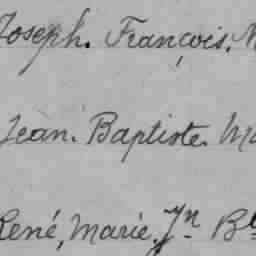 Joseph. François.
Jean. Baptiste. Ma
René, Marie. Jn Bte